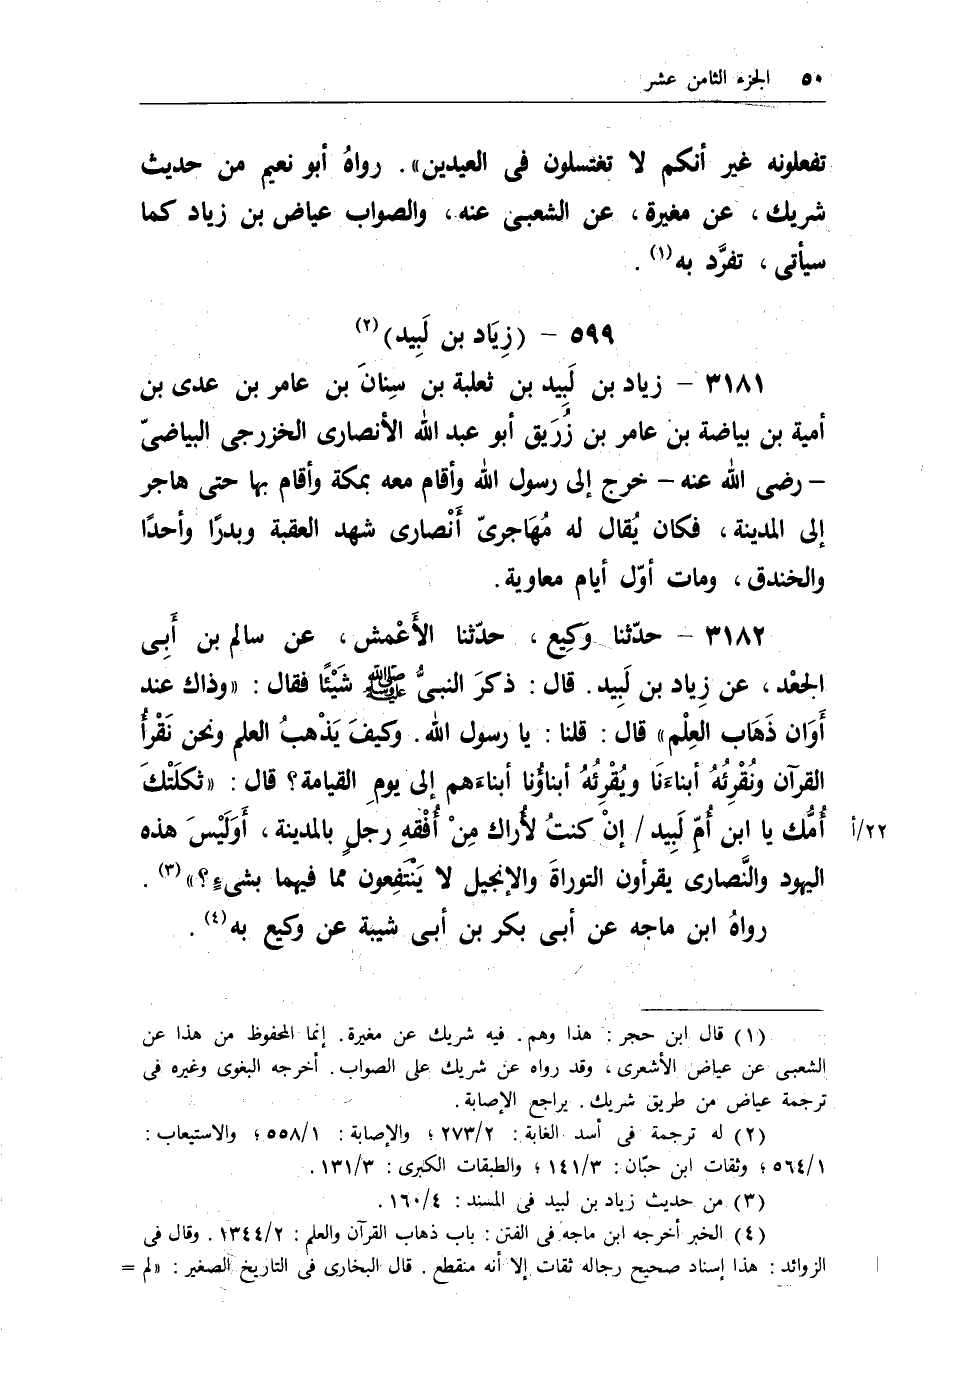 ٥٠ الجزء الثامن عشر
تفعلونه غير أنكم لا تغتسلون فى العيدين». رواهُ أبو نعيم من حديث
شريك، عن مغيرة، عن الشعبى عنه، والصواب عياض بن زياد كما
سيأتى، تفرَّد به(١).
٥٩٩ – (زِيَاد بن لَبِيد)(٢)
٣١٨١ – زياد بن لَبِيد بن ثعلبة بن سِنانَ بن عامر بن عدى بن
أمية بن بياضة بن عامر بن زُرَيق أبو عبد الله الأنصارى الخزرجى البياضىّ
– رضى الله عنه – خرج إلى رسول الله وأقام معه بمكة وأقام بها حتى هاجر
إلى المدينة، فكان يُقال له مُهَاجرىّ أَنْصارى شهد العقبة وبدرًا وأحدًا
والخندق، ومات أوّل أيام معاوية.
٣١٨٢ – حدّثنا وَكِيع، حدّثنا الأَعْمش، عن سالم بن أَبِى
الجعْد، عن زِياد بن لَبِيد. قال: ذكرَ النبىُّ ﷺ شَيْئًا فقال: «وذاك عند
أَوَان ذَهَاب العِلْم» قال: قلنا: يا رسول الله. وكيفَ يَذْهبُ العلم ونحن نَقْرأُ
القرآن ونُقْرِئُهُ أبناءَنَا ويُقْرِئُهُ أبناؤُنا أبناءَهم إلى يومِ القيامة؟ قال: «ثكلَتْكَ
أُمُّك يا ابن أُمِّ لَبِيد / إنْ كنتُ لأُراك مِنْ أُفْقهِ رجلٍ بالمدينة، أَوَلَيْسَ هذه ٢٢/أ
اليهود والنَّصارى يقرأون التوراةَ والإنجيل لا يَنْتَفِعون مما فيهما بشىءٍ؟»(٣).
رواهُ ابن ماجه عن أبى بكر بن أبى شيبة عن وكيع به(٤).
(١) قال ابن حجر: هذا وهم. فيه شريك عن مغيرة. إنما المحفوظ من هذا عن
الشعبى عن عياض الأشعرى، وقد رواه عن شريك على الصواب. أخرجه البغوى وغيره فى
ترجمة عياض من طريق شريك. يراجع الإصابة.
(٢) له ترجمة فى أسد الغابة: ٢٧٣/٢؛ والإصابة: ٥٥٨/١؛ والاستيعاب:
٥٦٤/١؛ وثقات ابن حبّان: ١٤١/٣؛ والطبقات الكبرى: ١٣١/٣.
(٣) من حديث زياد بن لبيد فى المسند: ١٦٠/٤.
(٤) الخبر أخرجه ابن ماجه فى الفتن: باب ذهاب القرآن والعلم: ١٣٤٤/٢. وقال فى
الزوائد: هذا إسناد صحيح رجاله ثقات إلا أنه منقطع. قال البخارى فى التاريخ الصغير: «لم =